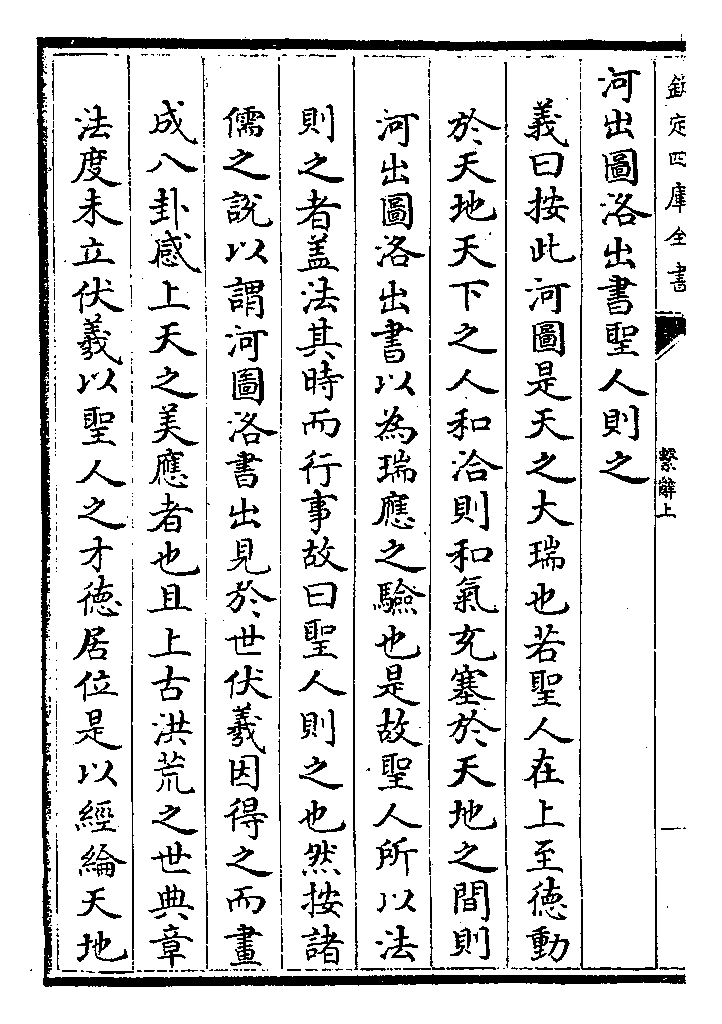 欽定四庫全書
繫辭上
河出圖洛出書聖人則之
義曰按此河圖是天之大瑞也若聖人在上至德動
於天地天下之人和洽則和氣充塞於天地之間則
河出圖洛出書以為瑞應之驗也是故聖人所以法
則之者盖法其時而行事故曰聖人則之也然按諸
儒之説以謂河圖洛書出見於世伏羲因得之而畫
成八卦感上天之美應者也且上古洪荒之世典章
法度未立伏羲以聖人之才徳居位是以經綸天地